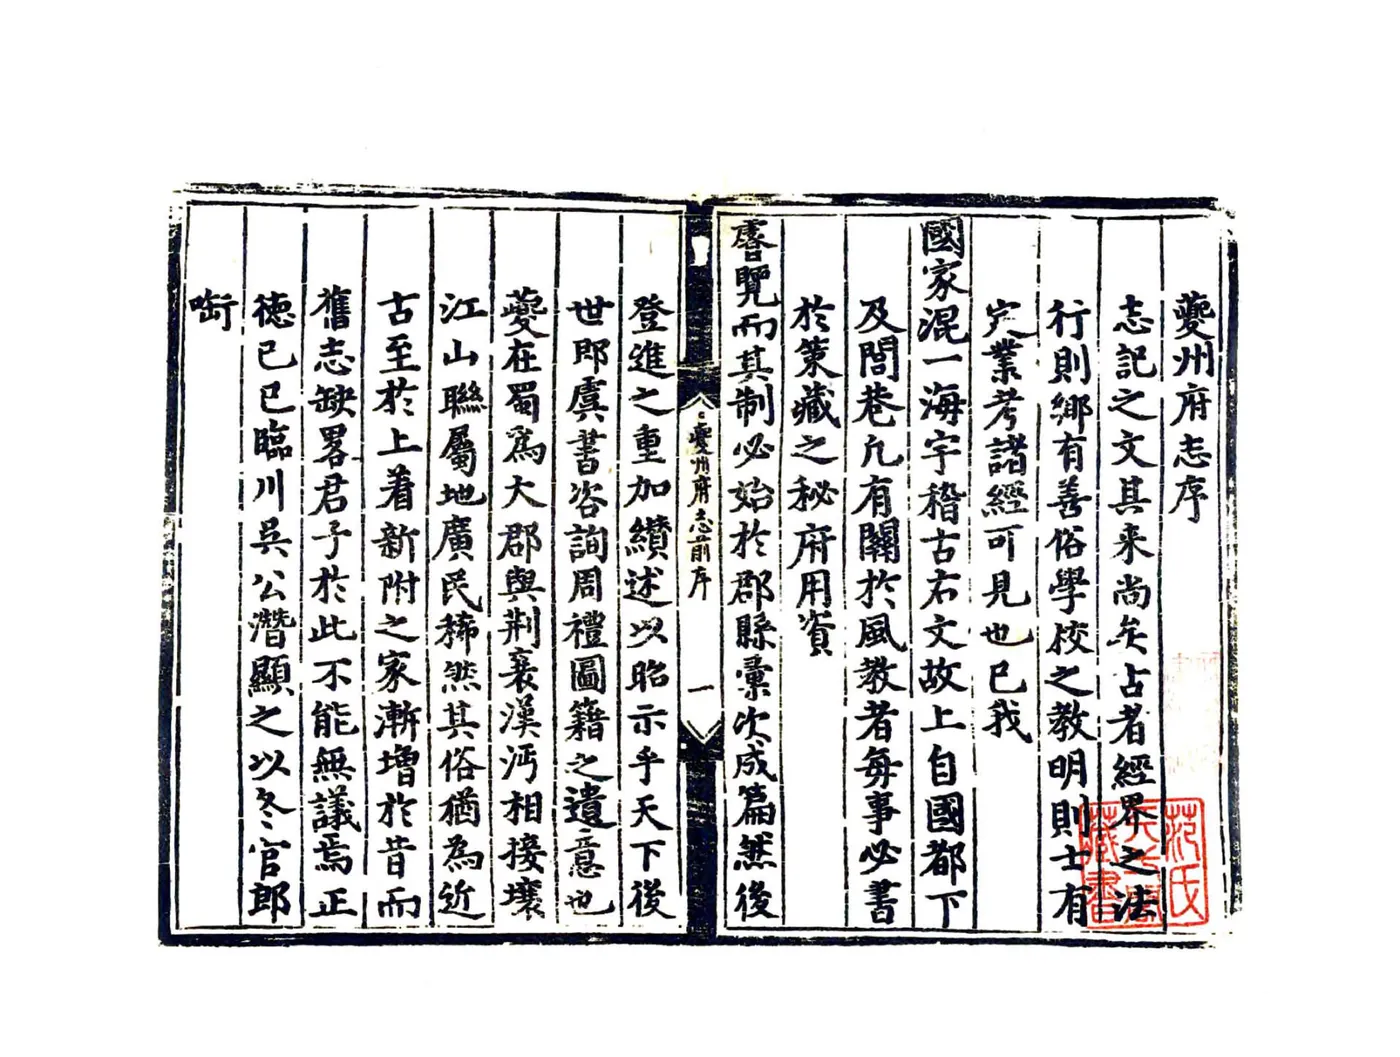 夔州府志序
志記之文其来尚矣占者經界之法
行則鄉有善俗學校之教明則士有
㝎業考諸經可見也已我
國家混一海宇稽古右文故上自國都下
及閭巷凢有關於風教者每事必書
於策藏之秘府用資
睿覽而其制必始於郡縣彙次成篇然後
夔州府志前序
一
登進之重加纉述以昭示乎天下後
世即虞書咨詢周禮圖籍之遺意也
夔在蜀爲大郡與荆襄漢沔相接壤
江山聯屬地廣民稀然其俗猶為近
古至於上着新附之家漸増於昔而
舊志缺畧君子於此不能無議焉正
徳己巳臨川吳公潛顯之以冬官郎
范氏
藏書